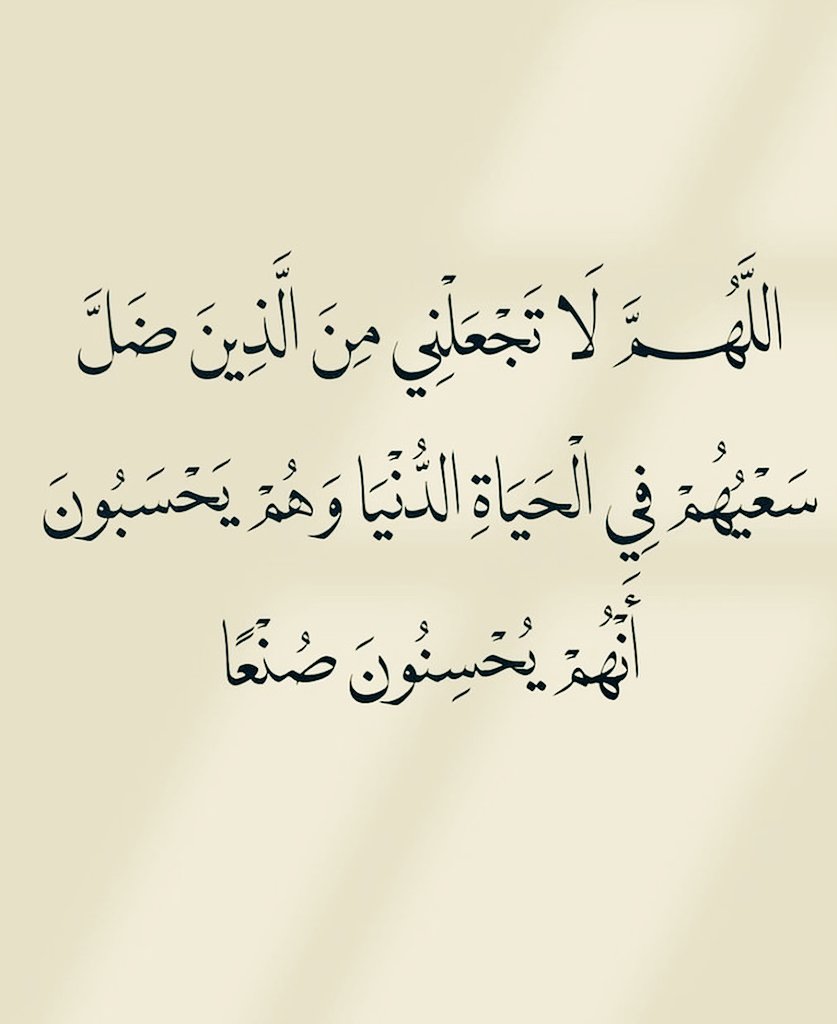 اللَّهُمَّ لَا تَجْعَلْنِي مِنَ الَّذِينَ ضَلَّ
سَعْيُهُمْ فِي الْحَيَاةِ الدُّنْيَا وَهُمْ يَحْسَبُونَ
أَنْهُمْ يُحْسِنُونَ صُنْعًا